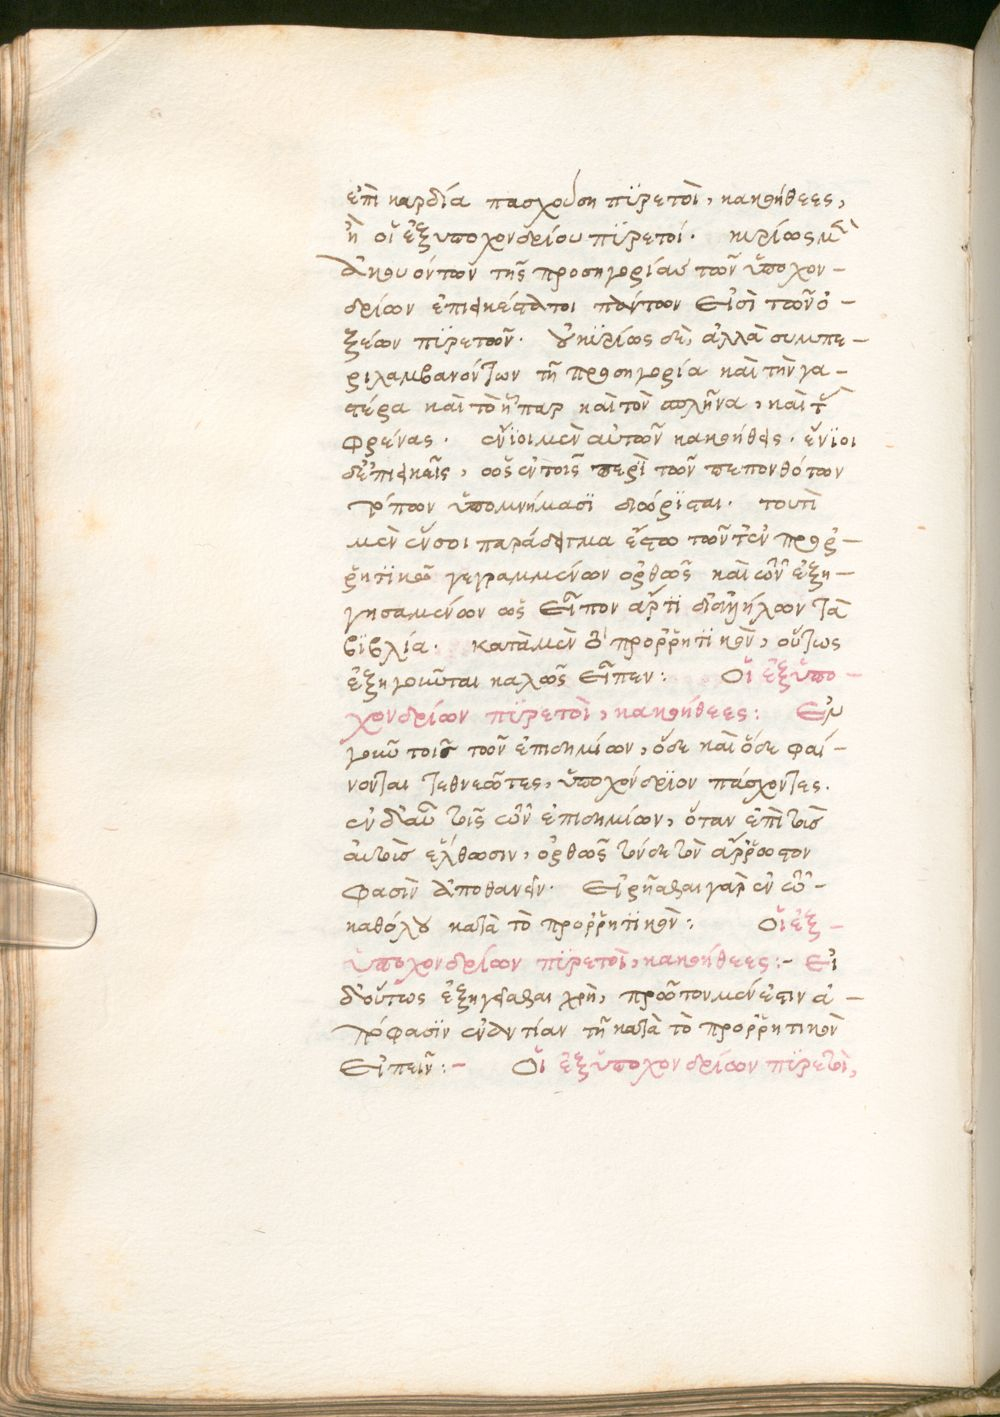 ἐπὶ καρδία πασχούση πϋρετοὶ, κακοήθεες,
ἢ οἱ ἐξ υποχονδρίου πϋρετοί. κυρίως μὲν
ἀκουόντων τῆς προσηγορίας τῶν ὑποχον-
δρίων ἐπιεικέστατοι πάντων εἰσὶ τῶν ὀ-
ξέων πϋρετῶν. οὐ κϋρίως δὲ, ἀλλὰ συμπε-
ριλαμβανόντων τῆ προσηγορία καὶ τὴν γα-
στέρα καὶ τὸ ἧπαρ καὶ τὸν σπλῆνα, καὶ τὰς
φρένας. ἔνϊοι μὲν αὐτῶν κακοήθεις. ἔνϊοι
δ' ἐπιεικεῖς, ὡς ἐν τοῖς περὶ τῶν πεπονθότων
τόπων ὑπομνήμασϊ διώρϊσται. τουτὶ
μὲν οὖν σοι παράδειγμα ἔστω τῶν τ' ἐν προρ-
ρητϊκῶ γεγραμμένων ὀρθῶς καὶ τῶν ἐξη-
γησαμένων ὡς εἶπον ἄρτϊ δι' ἀλλήλων τὰ
βϊβλία. κατὰ μὲν τὸ προρρητϊκὸν, οὕτως
ἐξηγοῦνται καλῶς εἶπεν: Οἱ ἐξ ὑπο-
χονδρίων πϋρετοὶ, κακοήθεες: Ἐν
γοῦν τοῖς τῶν ἐπιδημίων, ὅδε καὶ ὅδε φαί-
νονται τεθνεῶτες, ὑποχόνδρϊον πάσχοντες.
ἐν δ' αὖ τοῖς τῶν ἐπιδημίων, ὅταν ἐπὶ τοῖς
αὐτοῖς ἔλθωσιν, ὀρθῶς τόνδε τὸν ἄρρωστον
φασὶν ἀποθανεῖν. Εἰρῆσθαι γὰρ ἐν τῶ
καθόλου κατὰ τὸ προρρητϊκὸν: Οἱ ἐξ
ὑποχονδρίων πϋρετοὶ, κακοήθεες:- Εἰ
δ' οὕτως ἐξηγεῖσθαι χρὴ, πρῶτον μὲν ἔστιν ἀ-
πόφασϊν ἐναντίαν τῆ κατὰ τὸ προρρητικὸν
εἰπεῖν:- Οἱ ἐξ ὑποχονδρίων πϋρετοὶ,